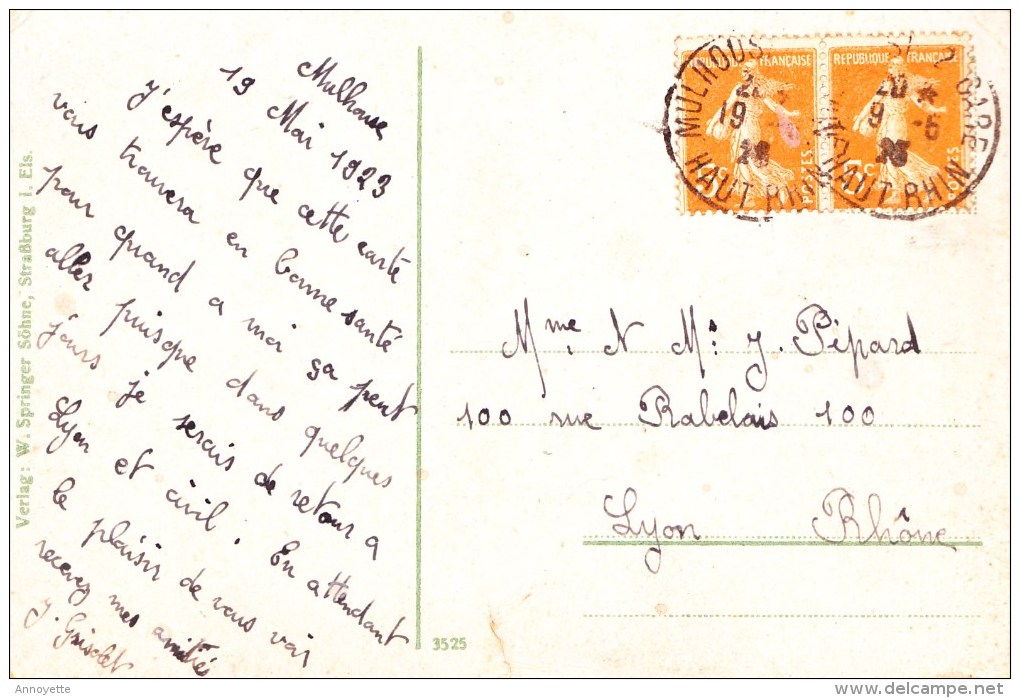 Mulhouse
19 Mai 1923
J'espère que cette carte
vous trouvera en bonne santé
pour quand a moi sa peut
aller puisque dans quelques
jours je serais de retour a
Lyon et civil. En attendant
le plaisir de vous voir
recevez mes amitiés
J.
Verlag: W. Springer Söhne, Straßburg i. Els.
3525
REPUBLIQUE FRANÇAISE
POSTES
REPUBLIQUE FRANÇAISE
5c
POSTES
MULHOUSE
19
HAUT RHIN
GARE
20
9 -5
HAUT RHIN
Mme N Mr J. Pépard
100 rue Rabelais 100
Lyon Rhône
Annoyette
www.delcampe.net